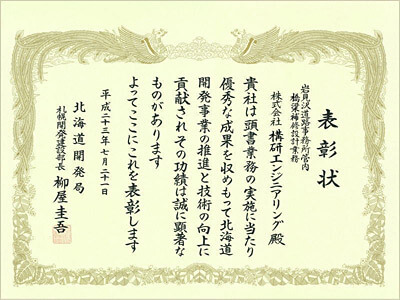 表彰状
岩見沢道路事務所管内
橋梁補修設計業務
株式会社 構研エンジニアリング 殿
貴社は頭書業務の実施に当たり
優秀な成果を収めもって北海道
開発事業の推進と技術の向上に
貢献されその功績は誠に顕著な
ものがあります
よってここにこれを表彰します
平成二十三年七月二十一日
北海道開発局
札幌開発建設部長 柳屋圭吾